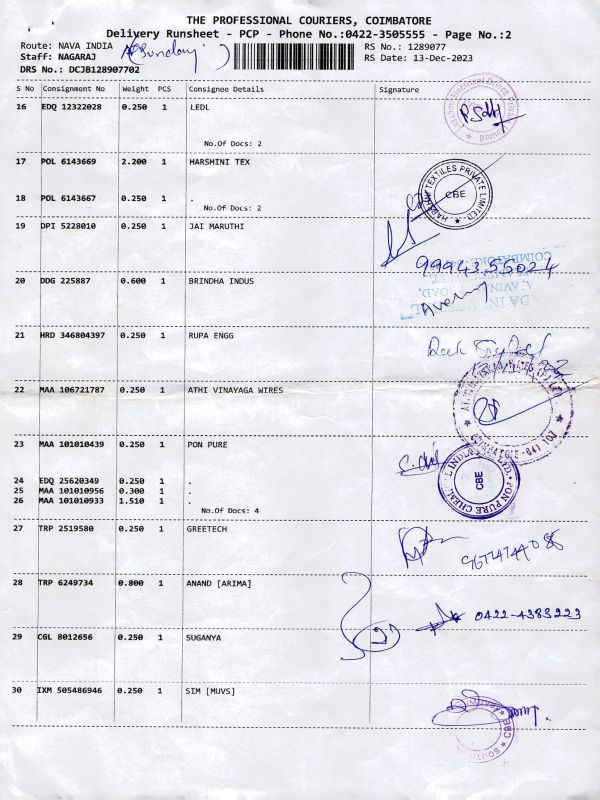 THE PROFESSIONAL COURIERS, COIMBATORE
Delivery Runsheet - PCP - Phone No.:0422-3505555 - Page No.:2
Route: NAVA INDIA (Sunday) RS No.: 1289077
Staff: NAGARAJ RS Date: 13-Dec-2023
DRS No.: DCJB128907702
S No Consignment No Weight PCS Consignee Details Signature
16 EDQ 12322028 0.250 1 LEDL
No.Of Docs: 2
17 POL 6143669 2.200 1 HARSHINI TEX
TEXTILES PRIVATE LIMITED
CBE
18 POL 6143667 0.250 1 .
No.Of Docs: 2
19 DPI 5228010 0.250 1 JAI MARUTHI
9994355024
20 DDG 225887 0.600 1 BRINDHA INDUS
21 HRD 346804397 0.250 1 RUPA ENGG
22 MAA 106721787 0.250 1 ATHI VINAYAGA WIRES
COIMBATORE-641 107
23 MAA 101010439 0.250 1 PON PURE
PON PURE CHEMICAL INDIA
CBE
24 EDQ 25620349 0.250 1 .
25 MAA 101010956 0.300 1 .
26 MAA 101010933 1.510 1 .
No.Of Docs: 4
27 TRP 2519580 0.250 1 GREETECH
28 TRP 6249734 0.800 1 ANAND [ARIMA]
0422-4383223
29 CGL 8012656 0.250 1 SUGANYA
30 IXM 505486946 0.250 1 SIM [MUVS]